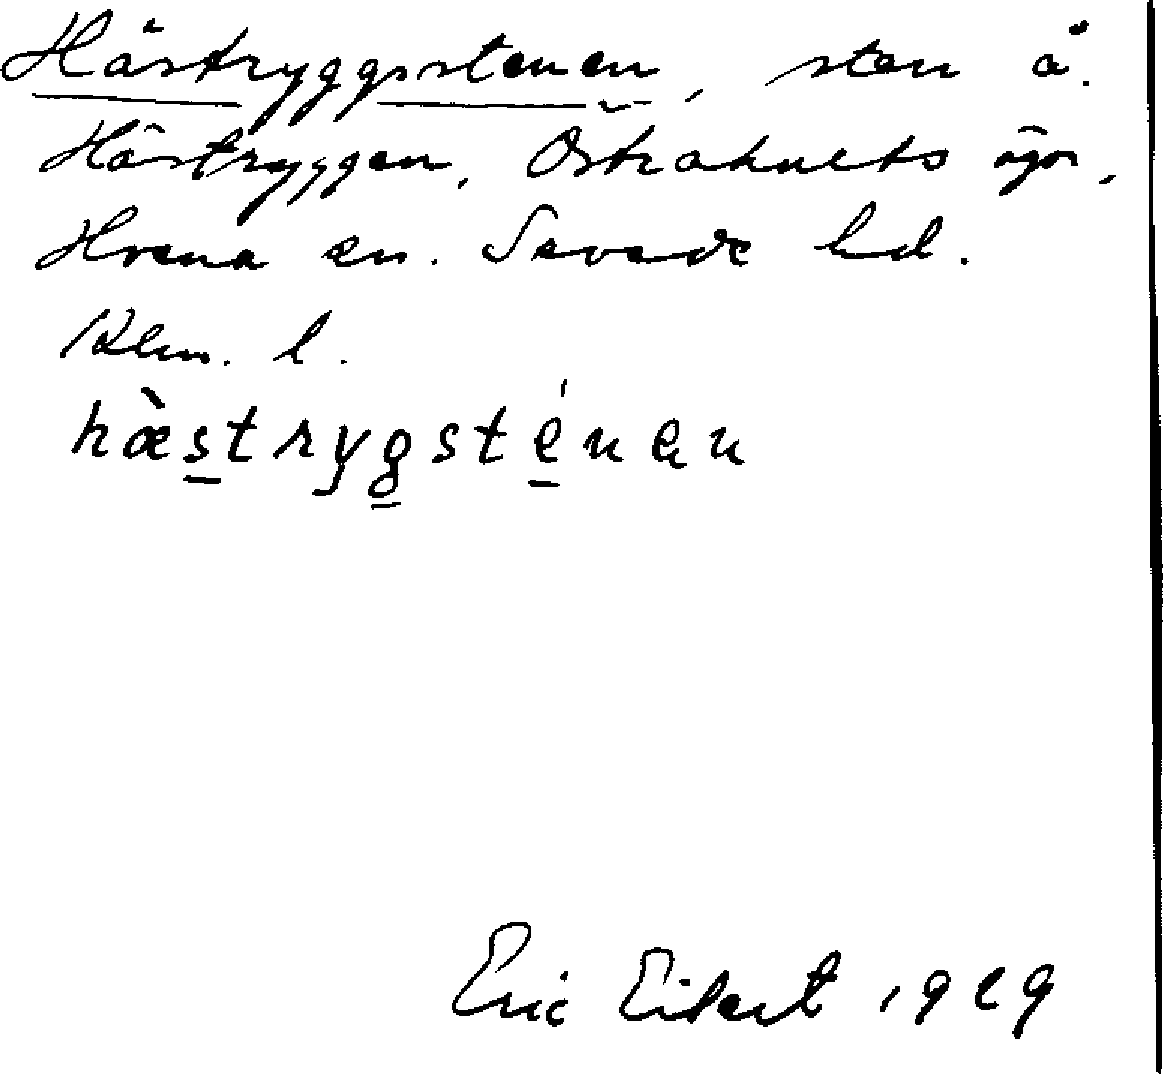 Hästryggsstenen, sten å
Hästryggen, Östrahults ägor,
Hvena sn. Sevede hd.
Klm. l.
hæ̀strygsténen
Eric 1929